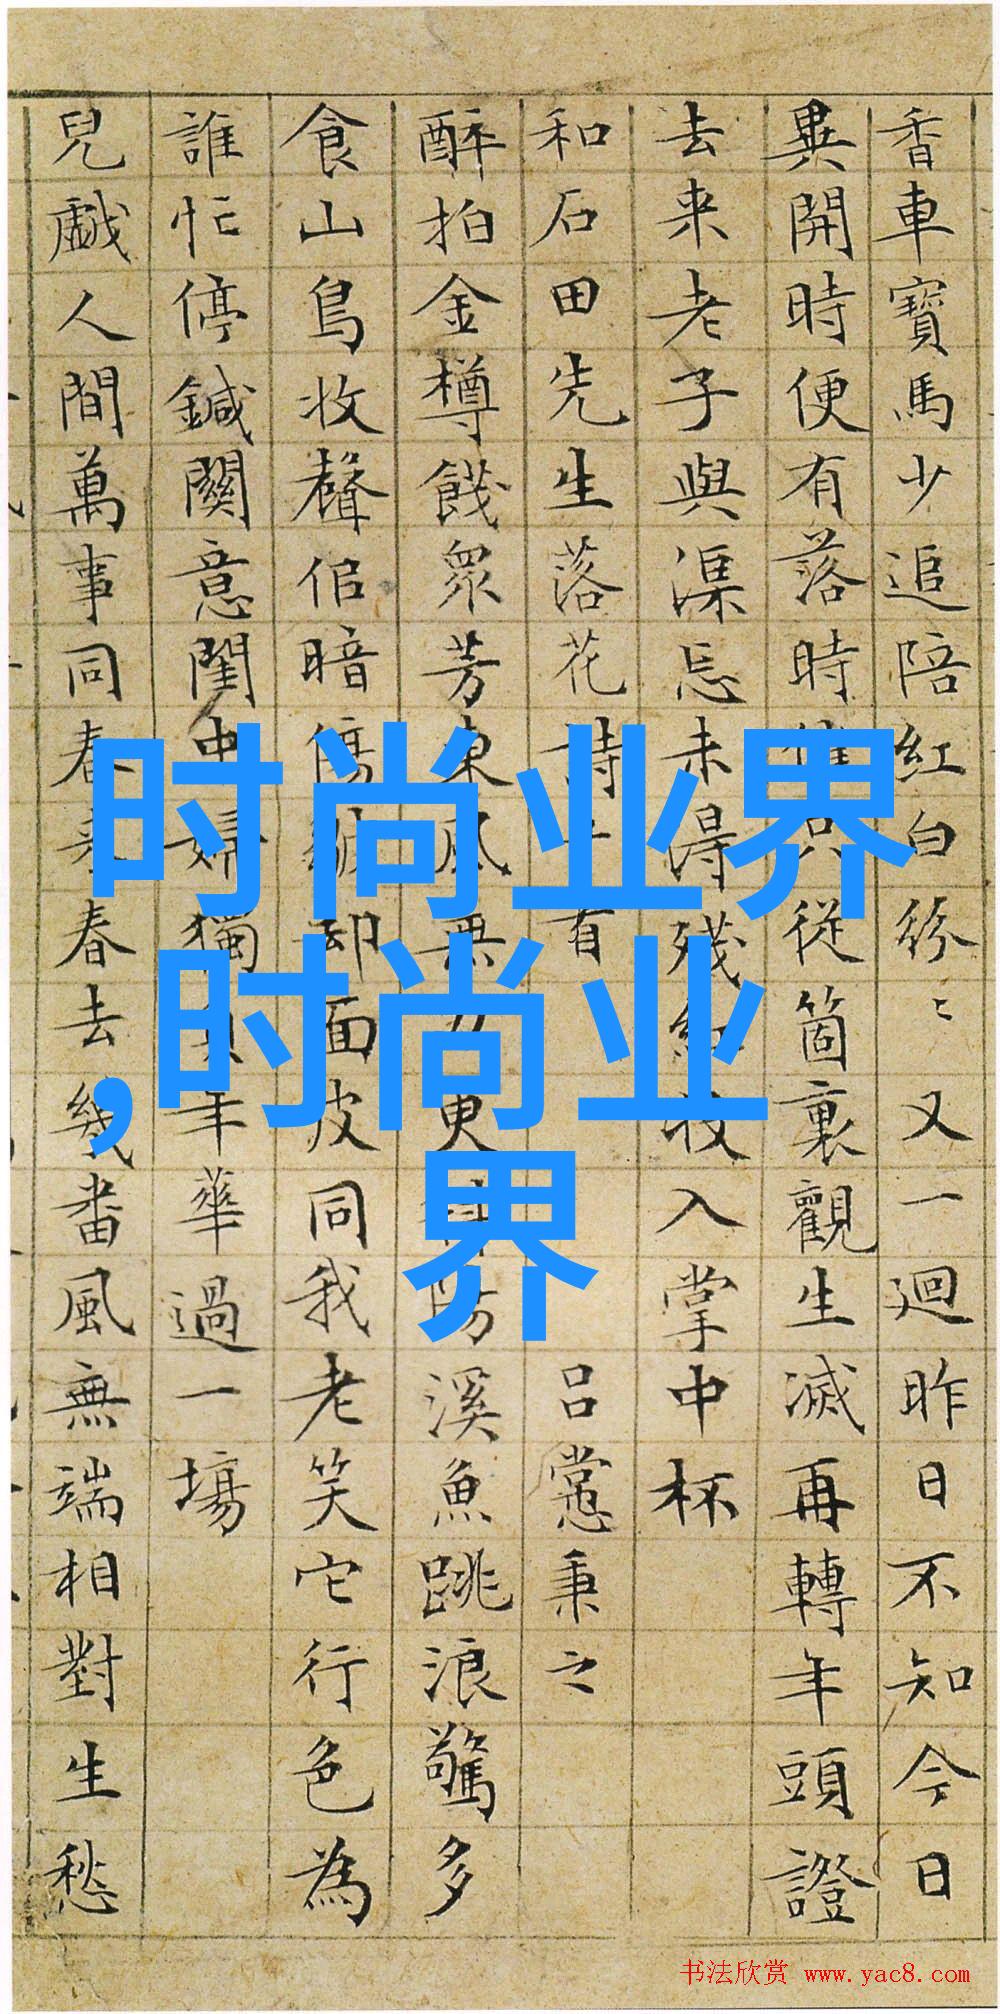 香車寶馬少追陪紅白紛〻又一迴昨日不知今日
異開時便有落時催只從箇裏觀生滅再轉年頭證
去来老子與渠忘未得殘紅收入掌中杯
和石田先生落花詩十有 吕㦂秉之
醉拍金樽餞衆芳東風無力更
溪魚跳浪驚多
食山鳥收聲倍暗傷
面皮同我老笑它行色為
誰忙停鍼關意閨中婦獨
年華過一場
兒戯人間萬事同春來春去幾番風無端相對生愁
时尚业界
,时尚业
界
书法欣赏 www.yac8.com